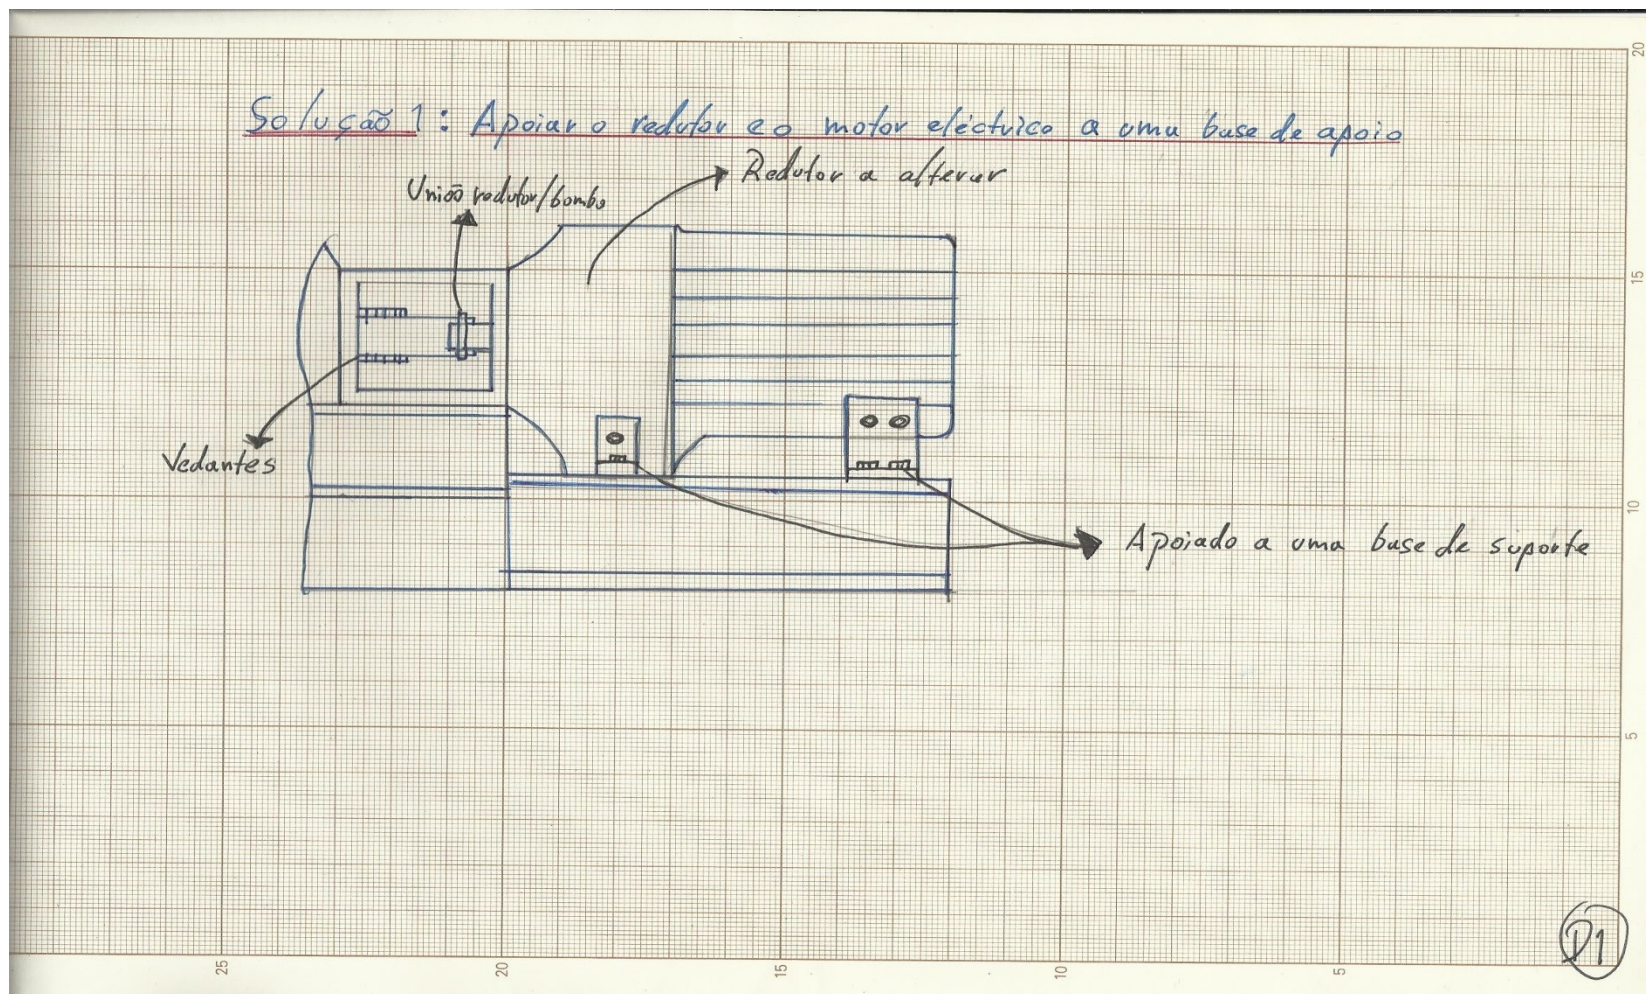 Solução 1: Apoiar o redutor e o motor eléctrico a uma base de apoio
Redutor a alterar
União redutor/bomba
Vedantes
Apoiado a uma base de suporte
20
15
10
5
25
20
15
10
5
D1